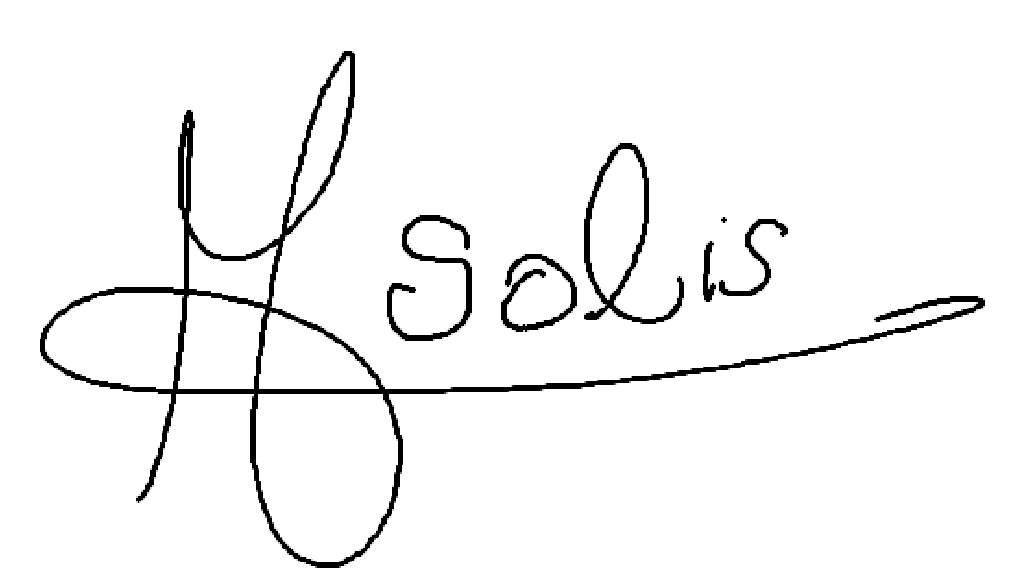 M Solis